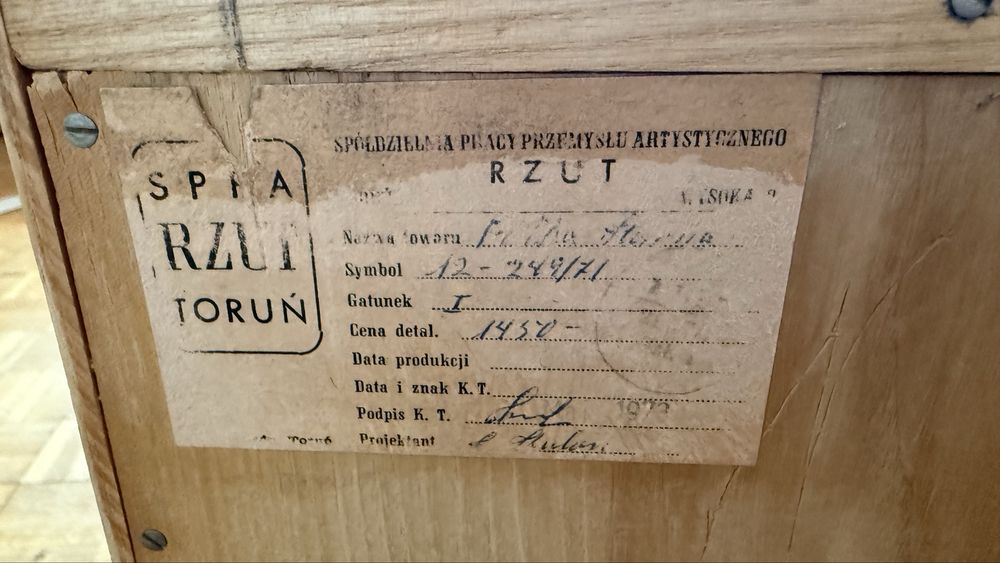 SPÓŁDZIELNIA PRACY PRZEMYSŁU ARTYSTYCZNEGO
RZUT
WYSOKA
SPPA
RZUT
TORUŃ
Nazwa towaru
Symbol 12-249/71
Gatunek I
Cena detal. 1450-
Data produkcji
Data i znak K.T.
Podpis K. T.
Projektant
Toruń